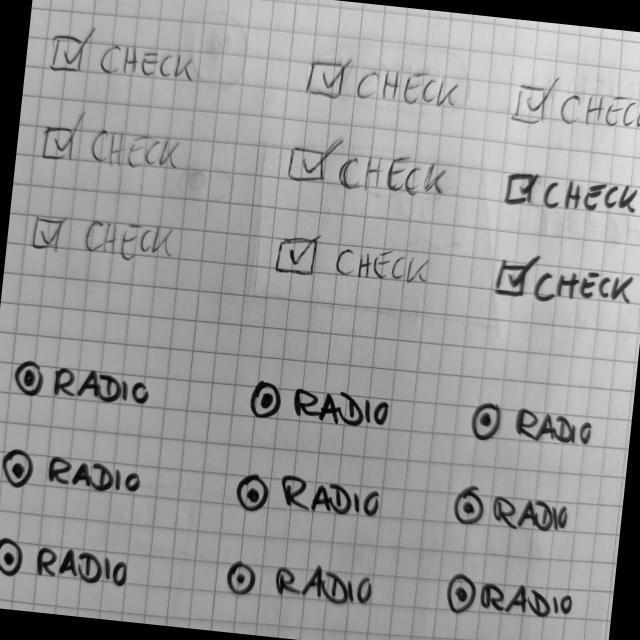 CHECK CHECK CHECK
CHECK CHECK CHECK
CHECK CHECK CHECK
RADIO RADIO RADIO
RADIO RADIO RADIO
RADIO RADIO RADIO